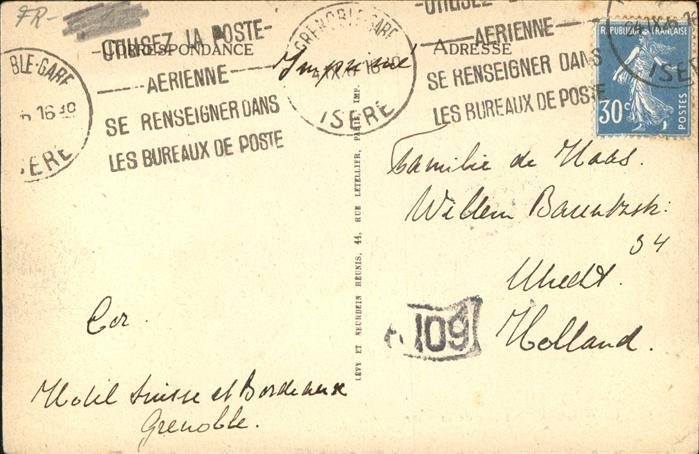 FR-
CORRESPONDANCE
UTILISEZ LA POSTE
AERIENNE
SE RENSEIGNER DANS
LES BUREAUX DE POSTE
BLE-GARE
16 30
ERE
GRENOBLE-GARE
ISERE
Imprimé
UTILISEZ
AERIENNE
SE RENSEIGNER DANS
LES BUREAUX DE POSTE
ADRESSE
ISERE
REPUBLIQUE FRANÇAISE
30c
POSTES
LÉVY ET NEURDEIN RÉUNIS, 44, RUE LETELLIER, PARIS, IMP.
Familie de Haas.
Willem Barentzstr.
34
Utrecht.
Holland.
109
Cor.
Hotel Suisse et Bordeaux
Grenoble.